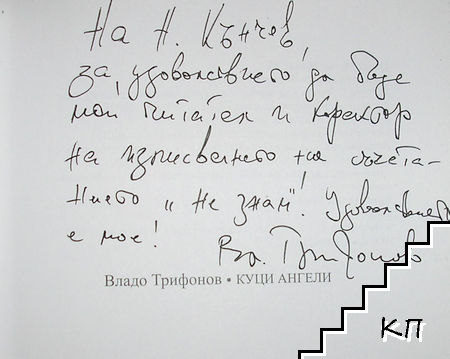 На Н. Кънчев,
за „удоволствието“ да бъде
мой читател и коректор
на изписването на съчета-
нието „не знам“! Удоволствието
е мое!
Вл. Трифонов
Владо Трифонов • КУЦИ АНГЕЛИ
КП